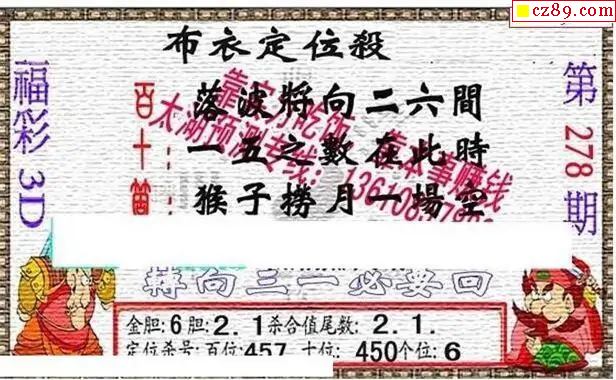 cz89.com
布衣定位殺
福彩3D
第278期
百十個
落波將向二六間
一五之數在此時
猴子撈月一場空
太湖预测专线：
转向三一必要回
金胆:6胆:2.1杀合值尾数:2.1.
定位杀号:百位:457 十位:450个位:6